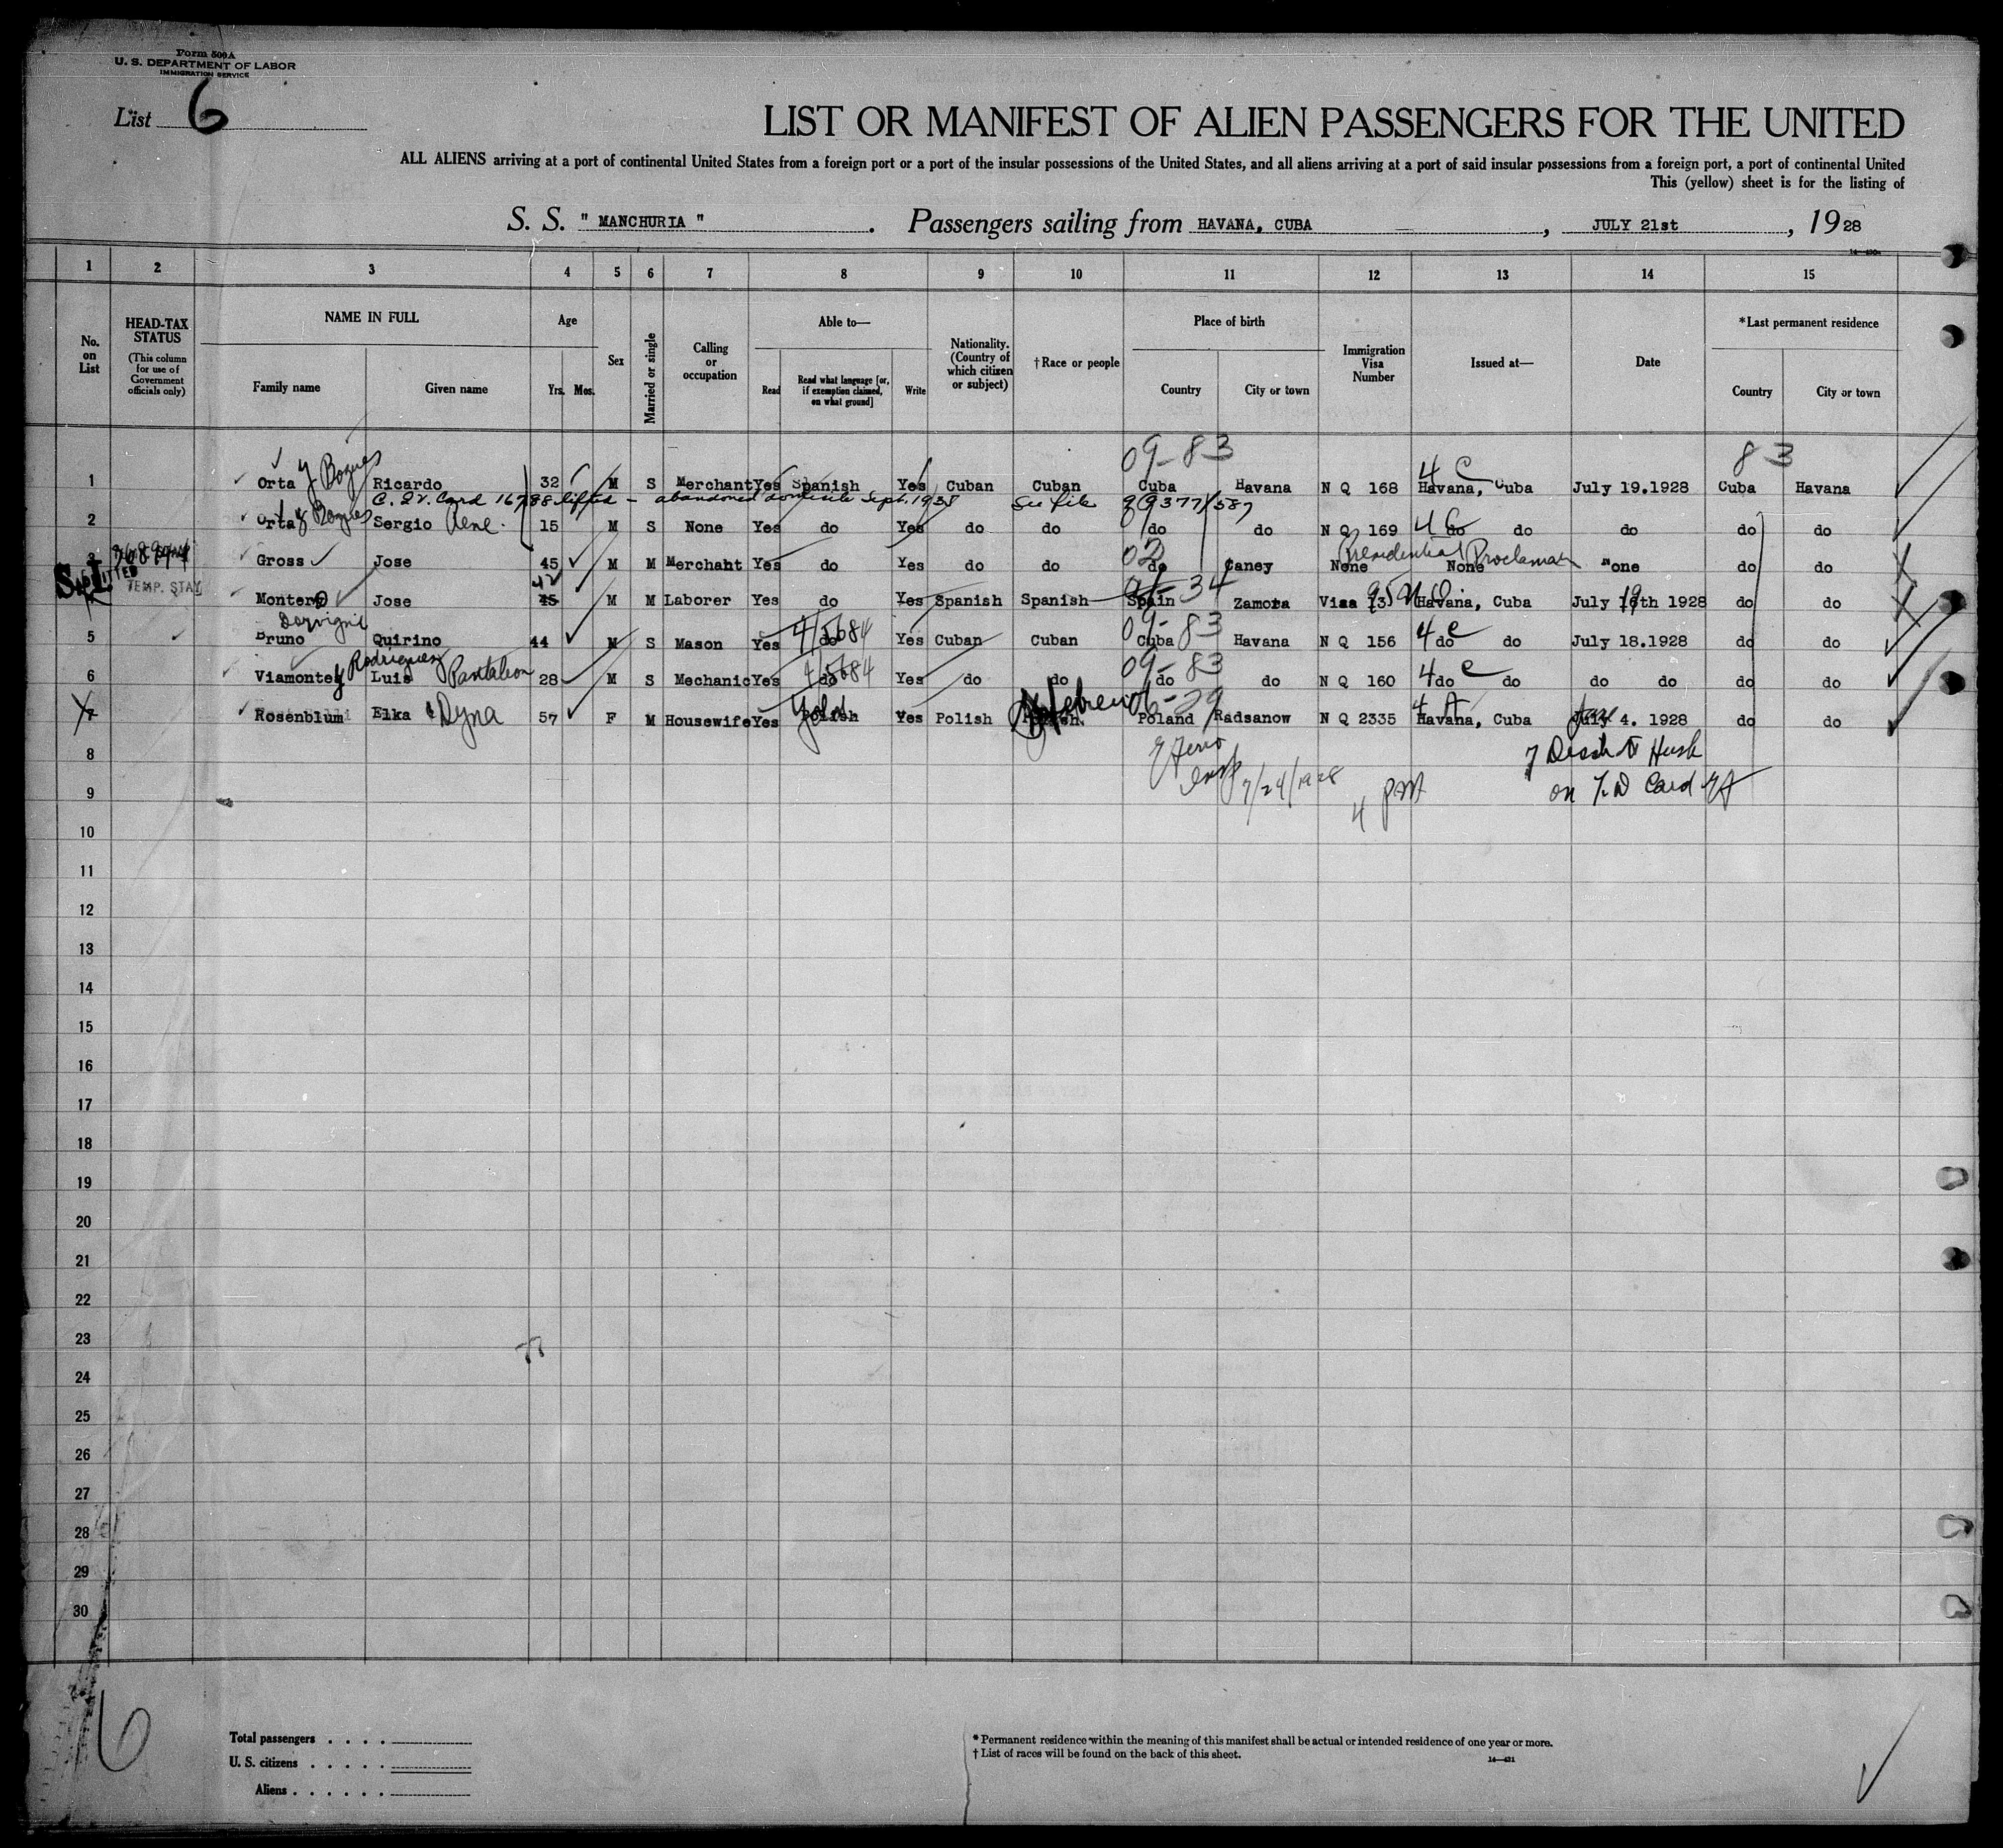 Form 500A
U. S. DEPARTMENT OF LABOR
IMMIGRATION SERVICE
List 6
LIST OR MANIFEST OF ALIEN PASSENGERS FOR THE UNITED
ALL ALIENS arriving at a port of continental United States from a foreign port or a port of the insular possessions of the United States, and all aliens arriving at a port of said insular possessions from a foreign port, a port of continental United
This (yellow) sheet is for the listing of
S. S. " MANCHURIA " . Passengers sailing from HAVANA, CUBA , JULY 21st , 1928
1 2 3 4 5 6 7 8 9 10 11 12 13 14 15
No. on List
HEAD-TAX STATUS (This column for use of Government officials only)
NAME IN FULL
Family name Given name
Age
Yrs. Mos.
Sex
Married or single
Calling or occupation
Able to—
Read Read what language [or, if exemption claimed, on what ground] Write
Nationality. (Country of which citizen or subject)
†Race or people
Place of birth
Country City or town
Immigration Visa Number
Issued at—
Date
*Last permanent residence
Country City or town
09-83 4 C 83
1 Orta y Ricardo 32 M S Merchant Yes Spanish Yes Cuban Cuban Cuba Havana N Q 168 Havana, Cuba July 19.1928 Cuba Havana
lifted - abandoned domicile Sept. 1938 See file 99377/587
2 Orta y Sergio Rene. 15 M S None Yes do Yes do do do do N Q 169 do do do do do
Presidential Proclamation
3 Gross Jose 45 M M Merchant Yes do Yes do do do Caney None None None do do
ADMITTED TEMP. STAY
42 34
4 Montero Jose 45 M M Laborer Yes do Yes Spanish Spanish Spain Zamora Visa Havana, Cuba July 19th 1928 do do
09-83
5 Bruno Quirino 44 M S Mason Yes do 4/5684 Yes Cuban Cuban Cuba Havana N Q 156 4 c do do July 18.1928 do do
09-83
6 Viamonte y Rodriguez Luis Pantaleon 28 M S Mechanic Yes do 4/5684 Yes do do do do N Q 160 4 c do do do do do do
7 Rosenblum Elka Dyna 57 F M Housewife Yes Polish Yes Polish Hebrew Poland Radsanow N Q 2335 Havana, Cuba June 4. 1928 do do
7/24/1928 4 PM
8
9
10
11
12
13
14
15
16
17
18
19
20
21
22
23
24
25
26
27
28
29
30
6
Total passengers . . . .
U. S. citizens . . . . .
Aliens . . . . . .
* Permanent residence within the meaning of this manifest shall be actual or intended residence of one year or more.
† List of races will be found on the back of this sheet.
14—421